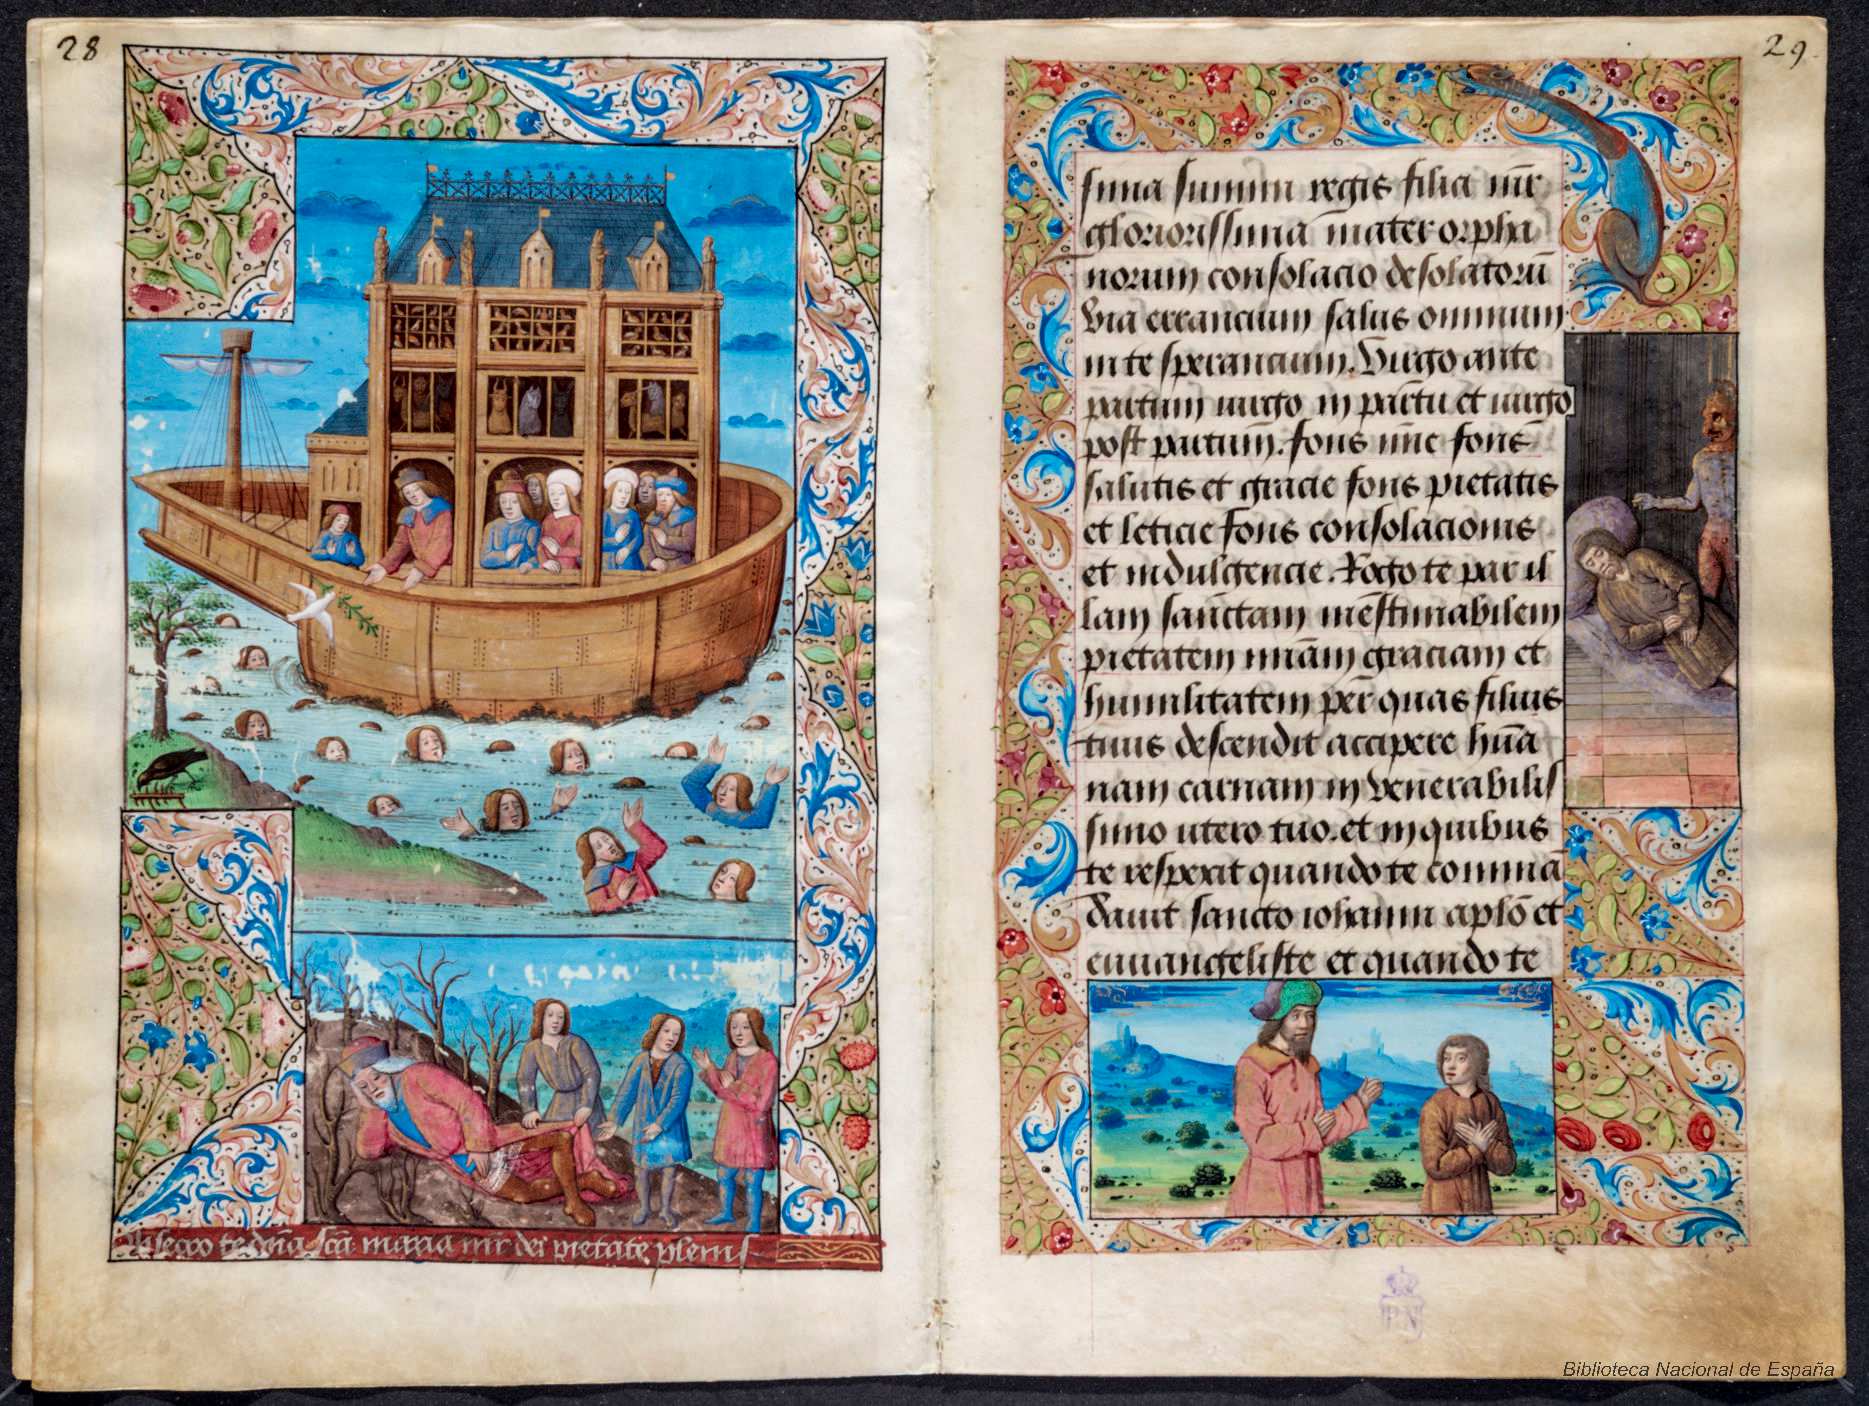 28
Obsecro te dn̄a scā maria mr̄ dei pietate plenis
29.
sima summi regis filia mr̄
gloriorissima mater orpha
norum consolacio desolatorū
Via errancium salus omnium
in te sperancium. Virgo ante
partum uirgo in partu et uirgo
post partum. fons mīe fons
salutis et gracie fons pietatis
et leticie fons consolacionis
et indulgencie. Rogo te per il
lam sanctam inestimabilem
pietatem mām graciam et
humilitatem per quas filius
tuus descendit accipere hūa
nam carnam in venerabilis
simo utero tuo. et in quibus
te respexit quando te comma
dauit sancto iohanni aplō et
euuangeliste et quando te
BN
Biblioteca Nacional de España